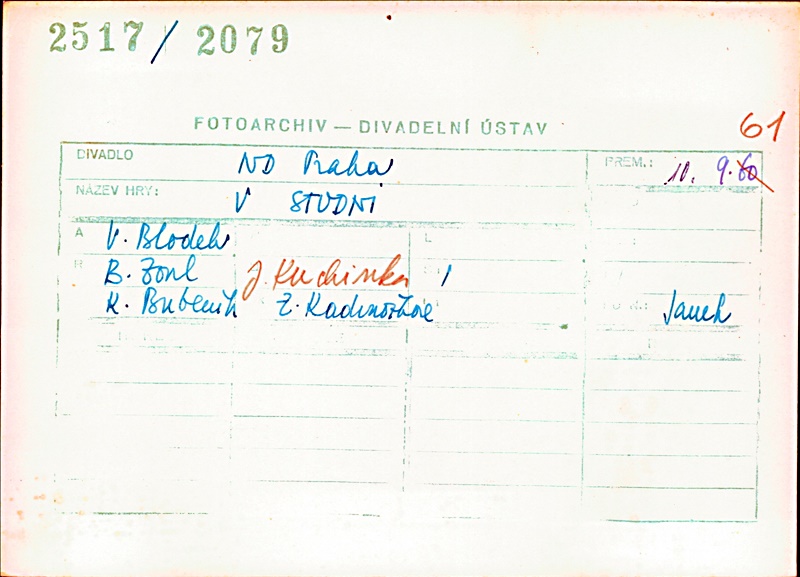 2517/2079
FOTOARCHIV — DIVADELNÍ ÚSTAV
61
DIVADLO ND Praha PREM.: 10. 9. 60
NÁZEV HRY: V STUDNI
A V. Blodek L
R B. Zonl J. Kuchinka
K. Bubeník Z. Kadrnožková Janek